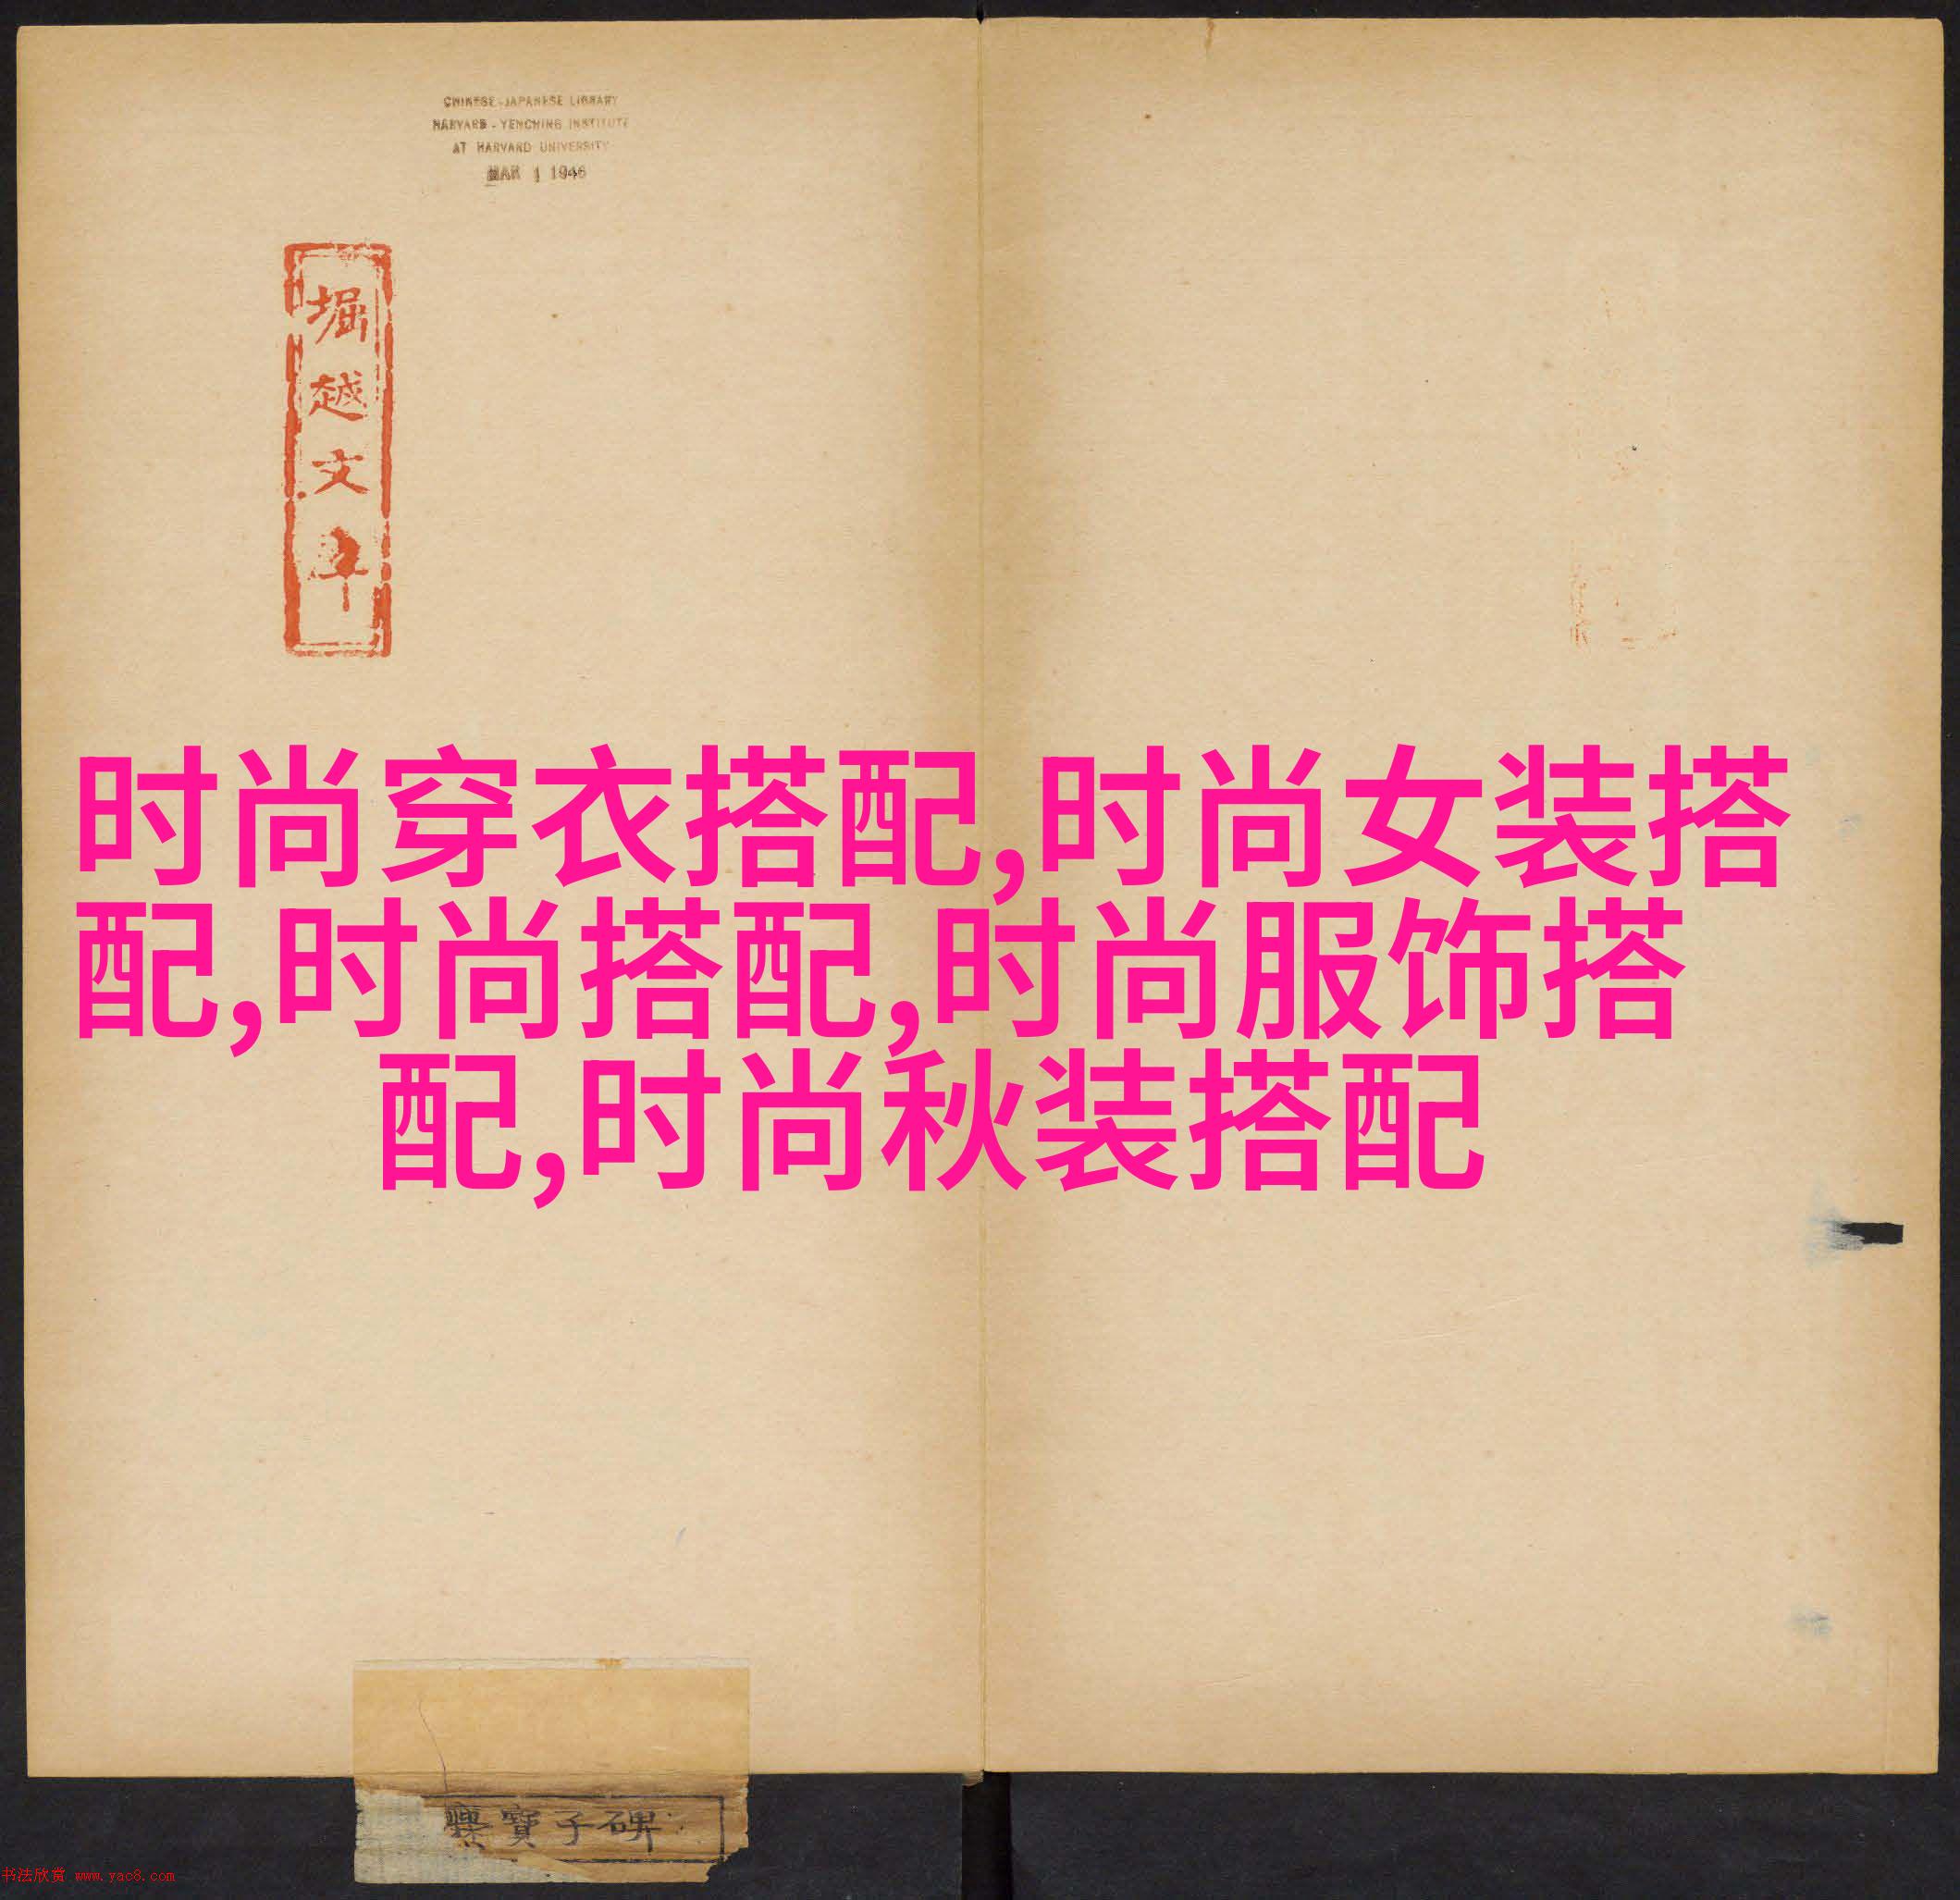 CHINESE-JAPANESE LIBRARY
HARVARD-YENCHING INSTITUTE
AT HARVARD UNIVERSITY
MAR 1 1946
堀越文
时尚穿衣搭配,时尚女装搭
配,时尚搭配,时尚服饰搭
配,时尚秋装搭配
爨寶子碑
书法欣赏 www.yac8.com